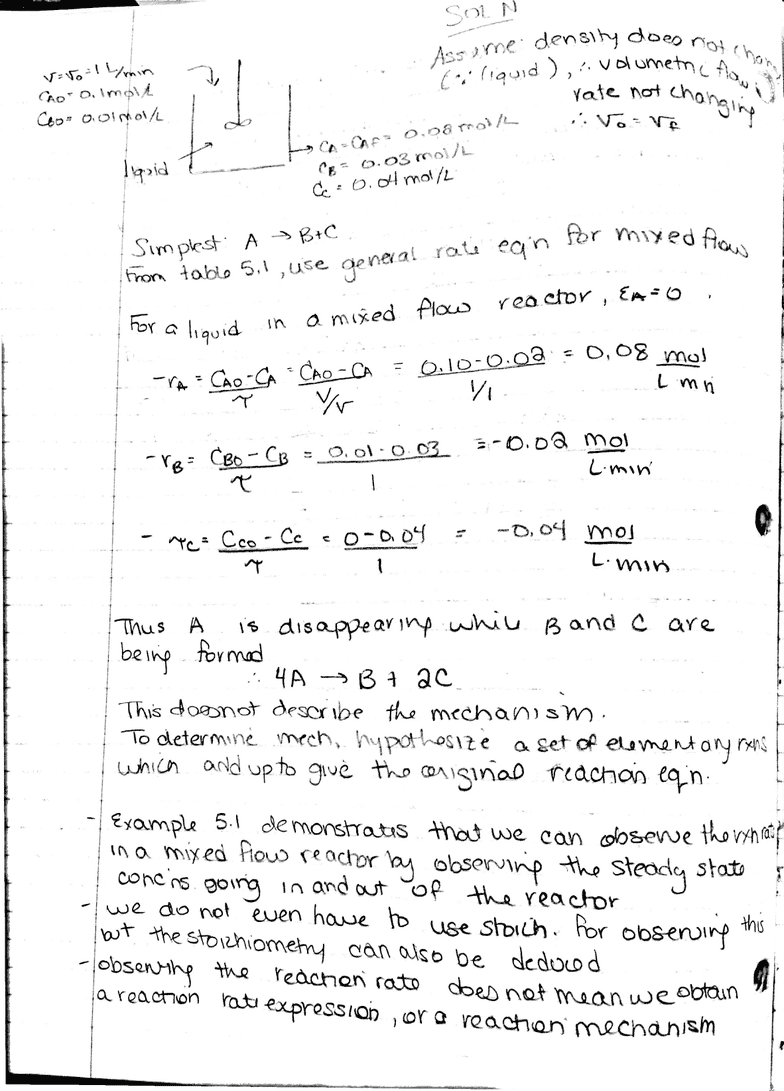 SOL N
Assume density does not chan
(∵ liquid), ∴ volumetric flow
rate not changing
∴ v₀ = v_f
v=v₀=1 L/min
C_A0=0.1mol/L
C_B0=0.01mol/L
liquid
C_A=C_Af=0.08mol/L
C_B=0.03mol/L
C_C=0.04mol/L
Simplest A → B+C
From table 5.1, use general rate eq'n for mixed flow
For a liquid in a mixed flow reactor, ε_A=0.
-r_A = (C_A0-C_A)/τ = (C_A0-C_A)/(V/v) = (0.10-0.02)/(1/1) = 0.08 mol/L mn
-r_B = (C_B0-C_B)/τ = (0.01-0.03)/1 = -0.02 mol/L·min
-r_C = (C_C0-C_C)/τ = (0-0.04)/1 = -0.04 mol/L·min
Thus A is disappearing while B and C are
being formed
∴ 4A → B + 2C
This doesnot describe the mechanism.
To determine mech, hypothesize a set of elementary rxns
which add up to give the original reaction eq'n.
- Example 5.1 demonstrates that we can observe the rxn rate
in a mixed flow reactor by observing the steady state
conc'ns going in and out of the reactor
- we do not even have to use stoich. for observing this
but the stoichiometry can also be deduced
- observing the reaction rate does not mean we obtain
a reaction rate expression, or a reaction mechanism